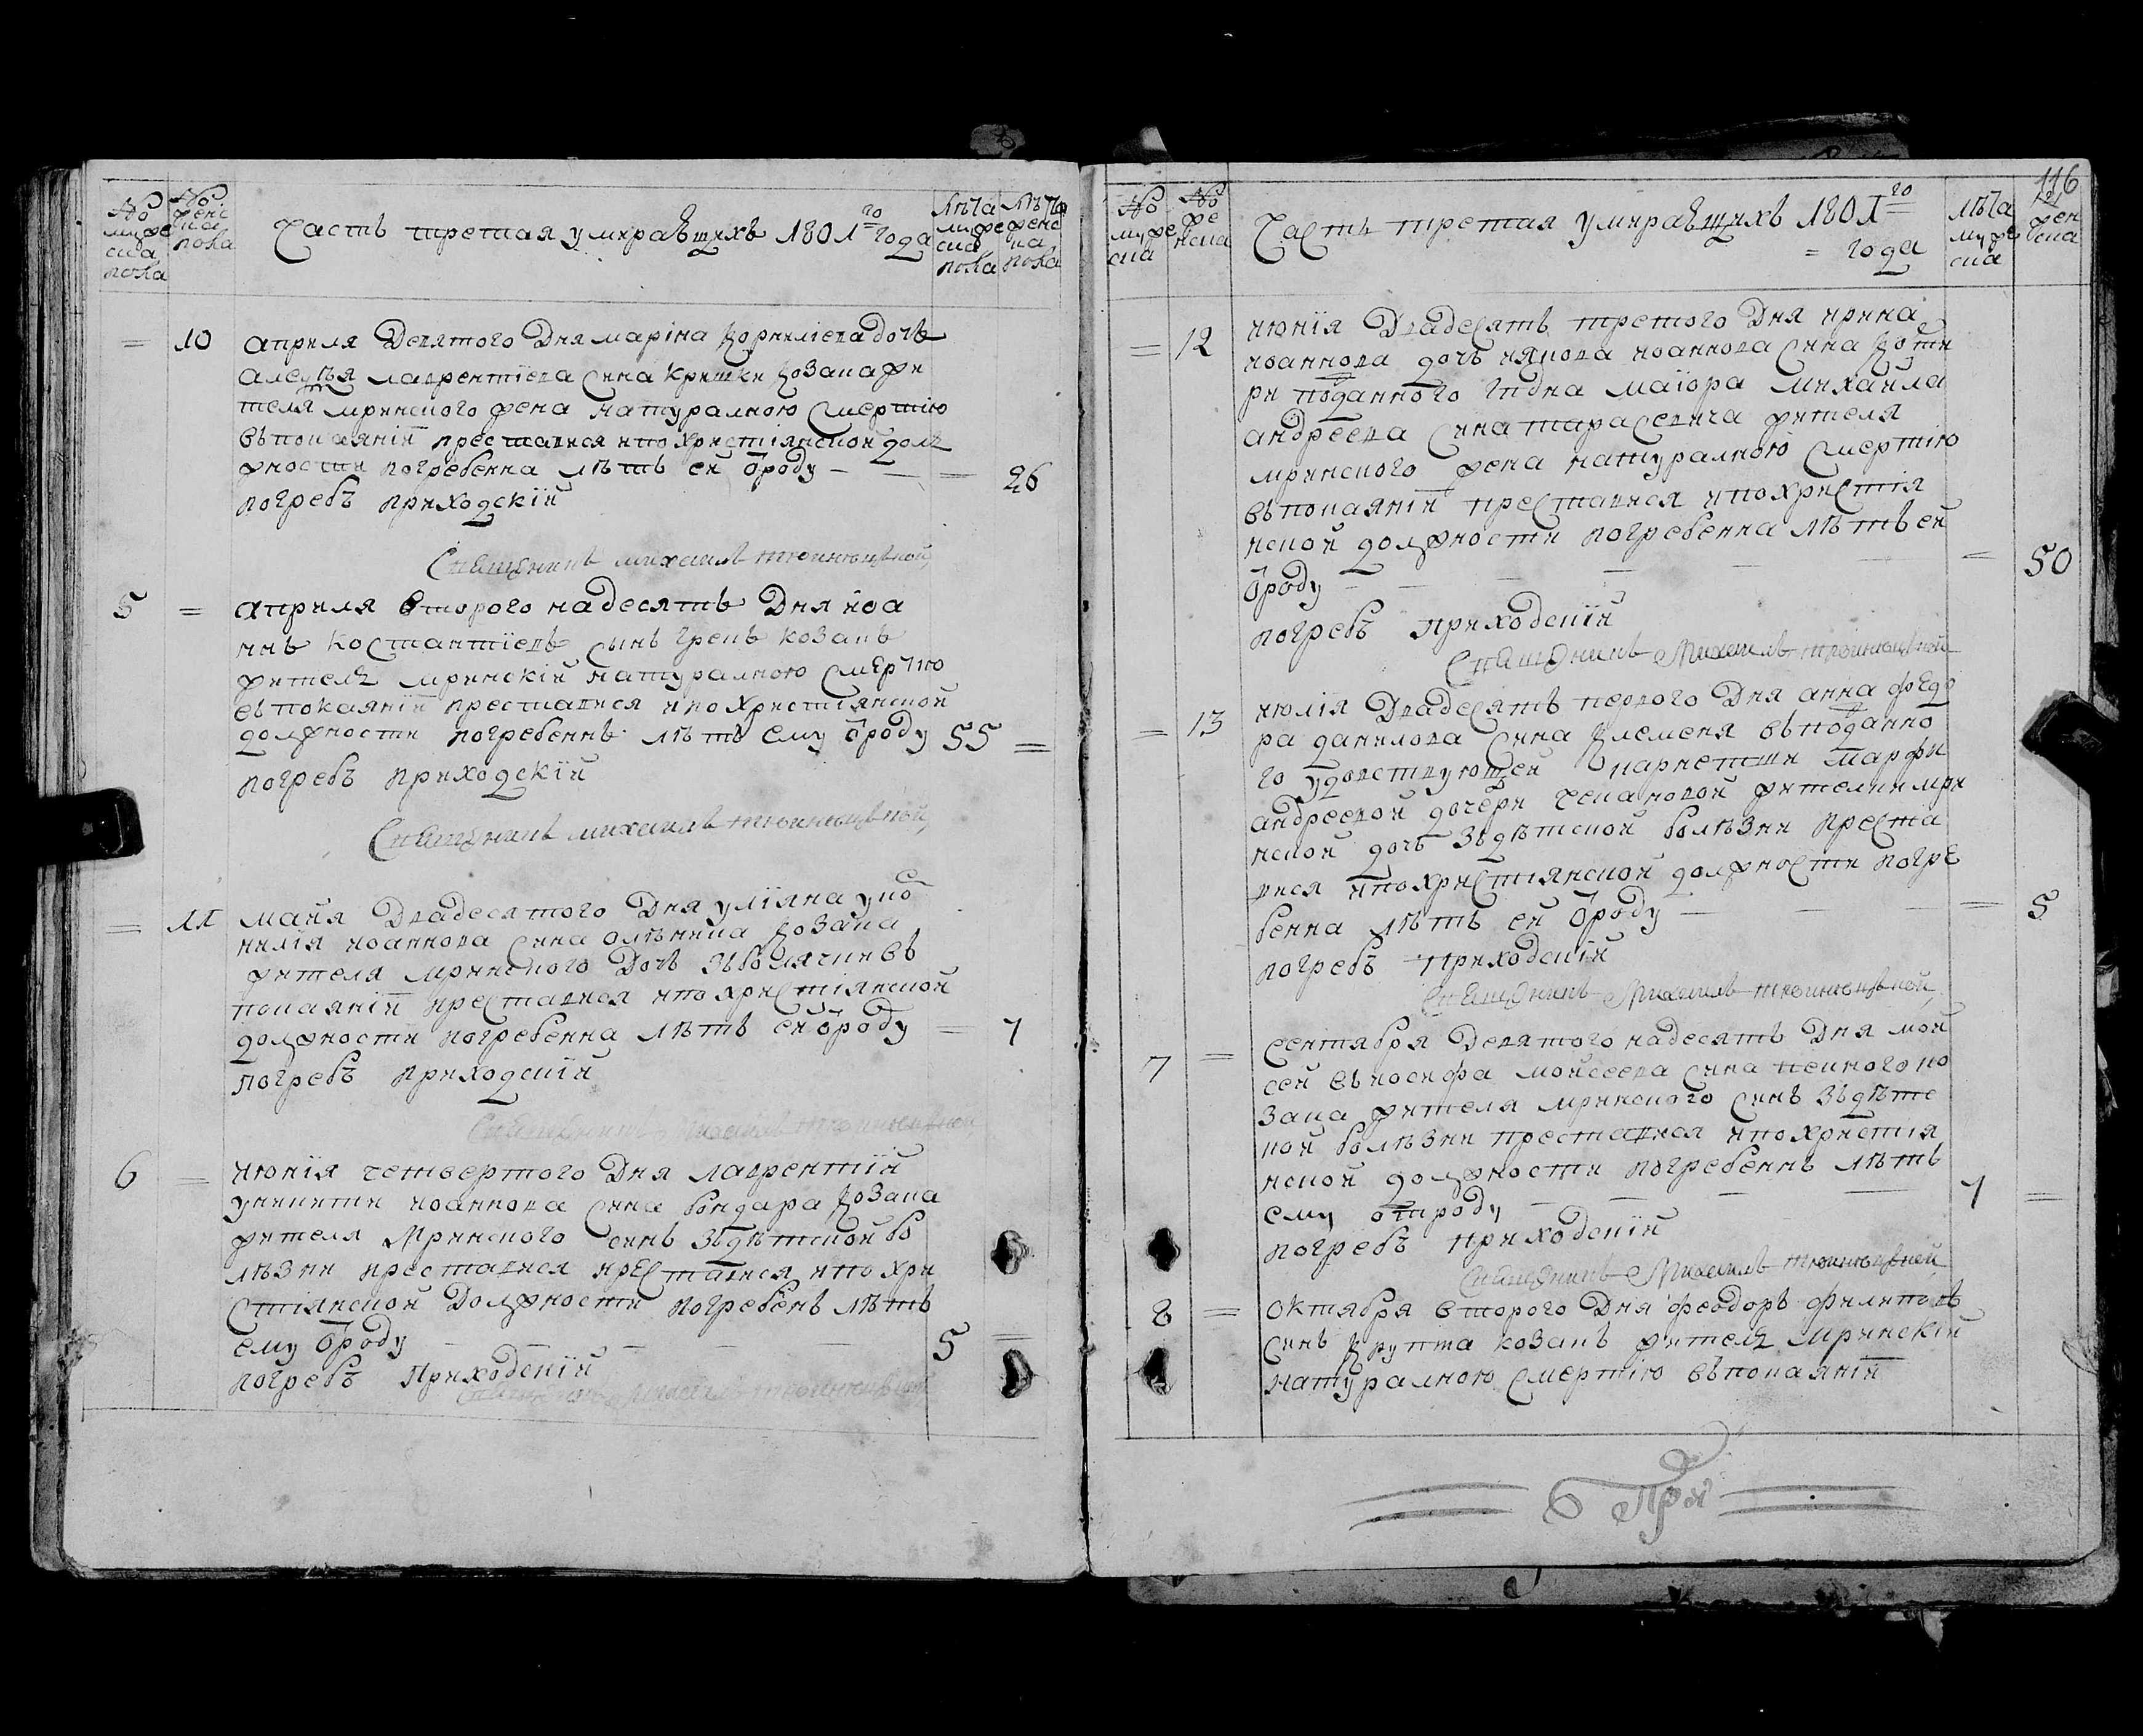 № мужеска пола
№ женска пола
Часть третая умиравшихъ 1801го года
Лѣта мужеска пола
Лѣта женска пола
= 10 априля Девятого Дня маріна корниліева дочь
лаврентїева сина кришки козака жи
теля мринского жена натуралною смертію
въ покаянїи преставися и по христіянской долж
ности погребенна лѣтъ ей ѿроду — — = 26
погребъ приходскїй
Священикъ михаилъ
5 = априля второго надесять Дня иоа
ннъ костантїевъ сынъ грекъ козакъ
жителъ мринскїй натуралною смертїю
въ покаянїи преставися и по христїянской
должности погребеннъ лѣтъ ему ѿроду 55 =
погребъ приходскїй
Священикъ михаилъ
= 11 маия Двадесятого Дня улїяна у ко
нилїя иоаннова сина олѣника козака
жителя мринского Дочь зъ болячикъ въ
покаянїи преставися и по христїянской
должности погребенна лѣтъ ей ѿроду = 1
погребъ приходскїй
6 = июнїя четвертого Дня лаврентїй
у никити иоаннова сина бондара козака
жителя Мринского синъ зъ дѣтской бо
лѣзни преставися преставися и по хри
стїянской Должности погребенъ лѣтъ
ему ѿроду — — — 5 =
погребъ Приходскїй
116
№ мужеска
№ женска
Часть третая умиравшихъ 1801го
= года
лѣта мужеска
женска
= 12 июнїя Двадесять третого Дня ирина
иоаннова дочь якова иоаннова сина
ри подданного гпдна маїора михайла
андреева сина тарасевича жителя
мринского жена натуралною смертїю
въ покаянїи преставися и по христїя
нской должности погребенна лѣтъ ей
ѿроду — — — — = 50
погребъ приходскїй
Священикъ Михаилъ
= 13 июлїя Двадесять первого Дня анна федо
ра данилова сина клеменя въ подданно
го удовствующей марфи
андреевой дочери жителки мри
нской дочь зъ дѣтской болѣзни преста
вися и по христїянской должности погре
бенна лѣтъ ей ѿроду — — = 5
погребъ Приходскїй
Священикъ Михаилъ
7 = сентября Девятого надесять Дня мой
сей въ иосифа мойсеева сина ко
зака жителя мринского синъ зъ дѣтс
кой болѣзни преставися и по христїя
нской должности погребеннъ лѣтъ
ему отроду — — — 1 =
погребъ приходскїй
Священикъ Михаилъ
8 = октября второго Дня феодоръ филиповъ
синъ крупка козакъ жителъ мринскїй
натуралною смертїю въ покаянїи